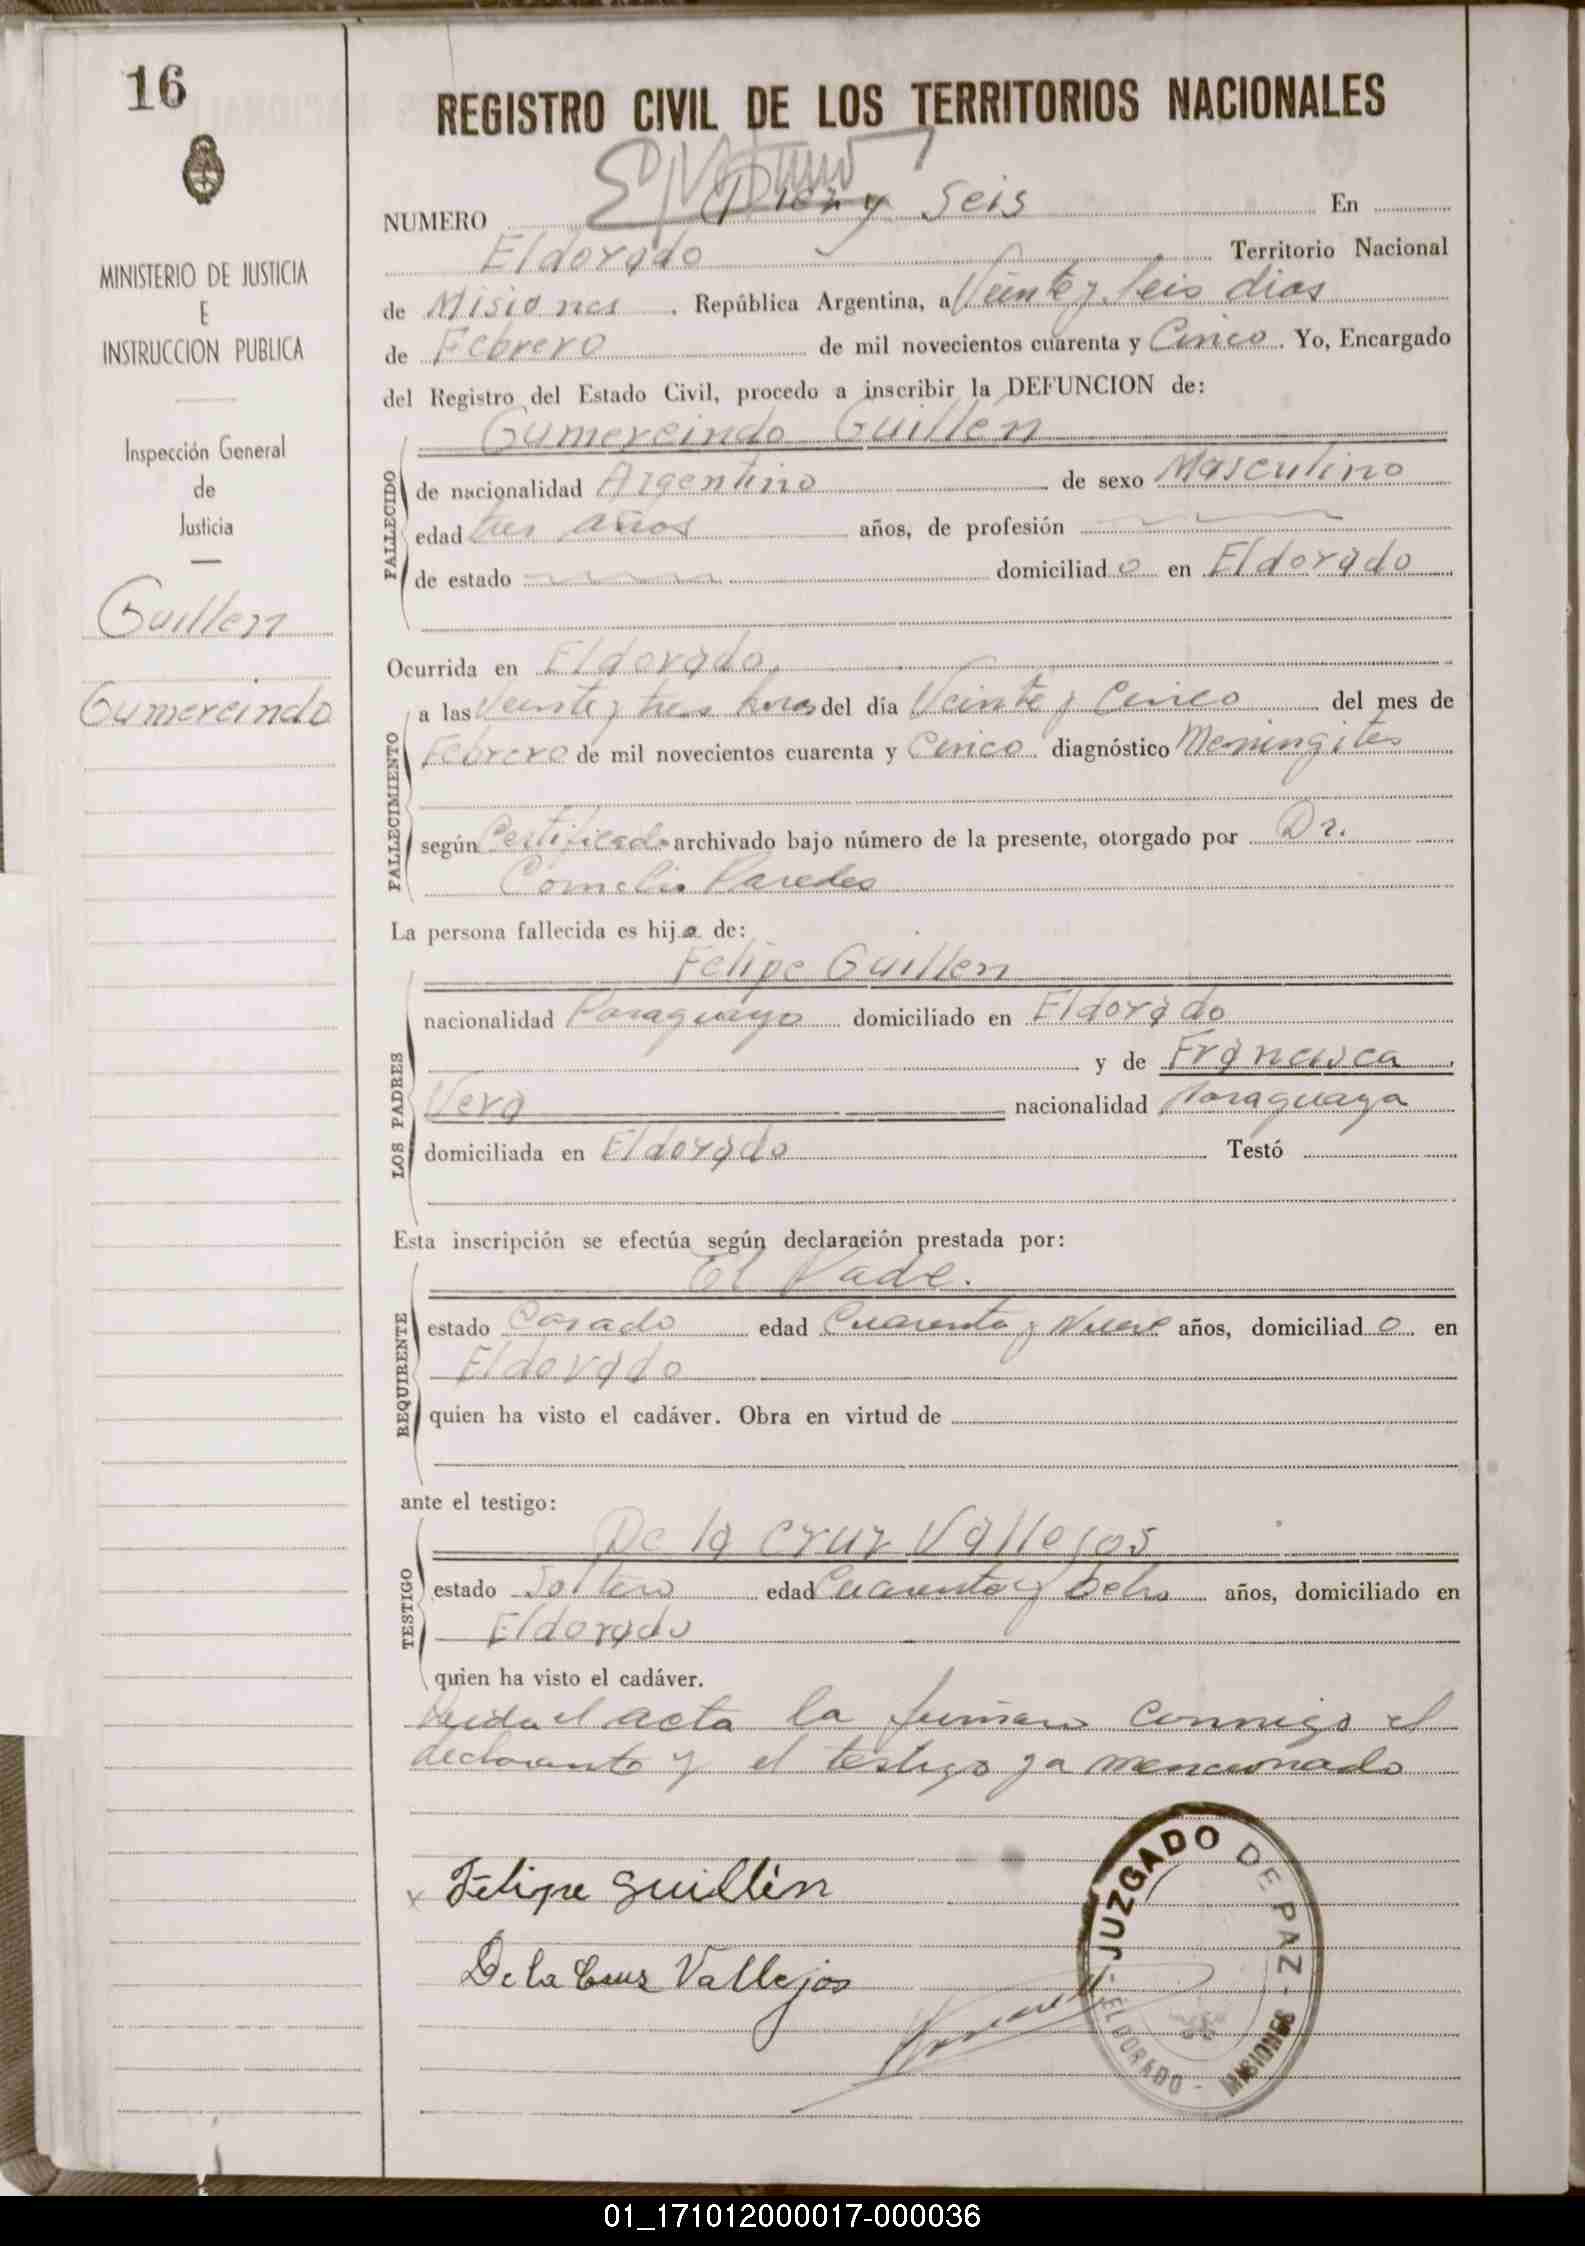 16
MINISTERIO DE JUSTICIA
E
INSTRUCCION PUBLICA
Inspección General
de
Justicia
Guillen
Gumercindo
REGISTRO CIVIL DE LOS TERRITORIOS NACIONALES
NUMERO Diez y Seis En
Eldorado Territorio Nacional
de Misiones, República Argentina, a Veinte y Seis dias
de Febrero de mil novecientos cuarenta y Cinco. Yo, Encargado
del Registro del Estado Civil, procedo a inscribir la DEFUNCION de:
Gumercindo Guillen
FALLECIDO
de nacionalidad Argentino de sexo Masculino
edad tres años años, de profesión
de estado domiciliado en Eldorado
Ocurrida en Eldorado.
FALLECIMIENTO
a las Veinte y tres horas del día Veinte y Cinco del mes de
Febrero de mil novecientos cuarenta y Cinco. diagnóstico Meningites
según Certificado archivado bajo número de la presente, otorgado por Dr.
Cornelio Paredes
La persona fallecida es hijo de:
LOS PADRES
Felipe Guillen
nacionalidad Paraguayo domiciliado en Eldorado
y de Francisca
Vera nacionalidad Paraguaya
domiciliada en Eldorado Testó
Esta inscripción se efectúa según declaración prestada por:
REQUIRENTE
El Padre.
estado Casado edad Cuarenta y Nueve años, domiciliado en
Eldorado
quien ha visto el cadáver. Obra en virtud de
ante el testigo:
TESTIGO
De la Cruz Vallejos
estado Soltero edad Cuarenta y Ocho años, domiciliado en
Eldorado
quien ha visto el cadáver.
Leida el acta la firman conmigo el
declarante y el testigo ya mencionado
x Felipe Guillén
De la Cruz Vallejos
JUZGADO DE PAZ - MISIONES - ELDORADO -
01_171012000017-000036